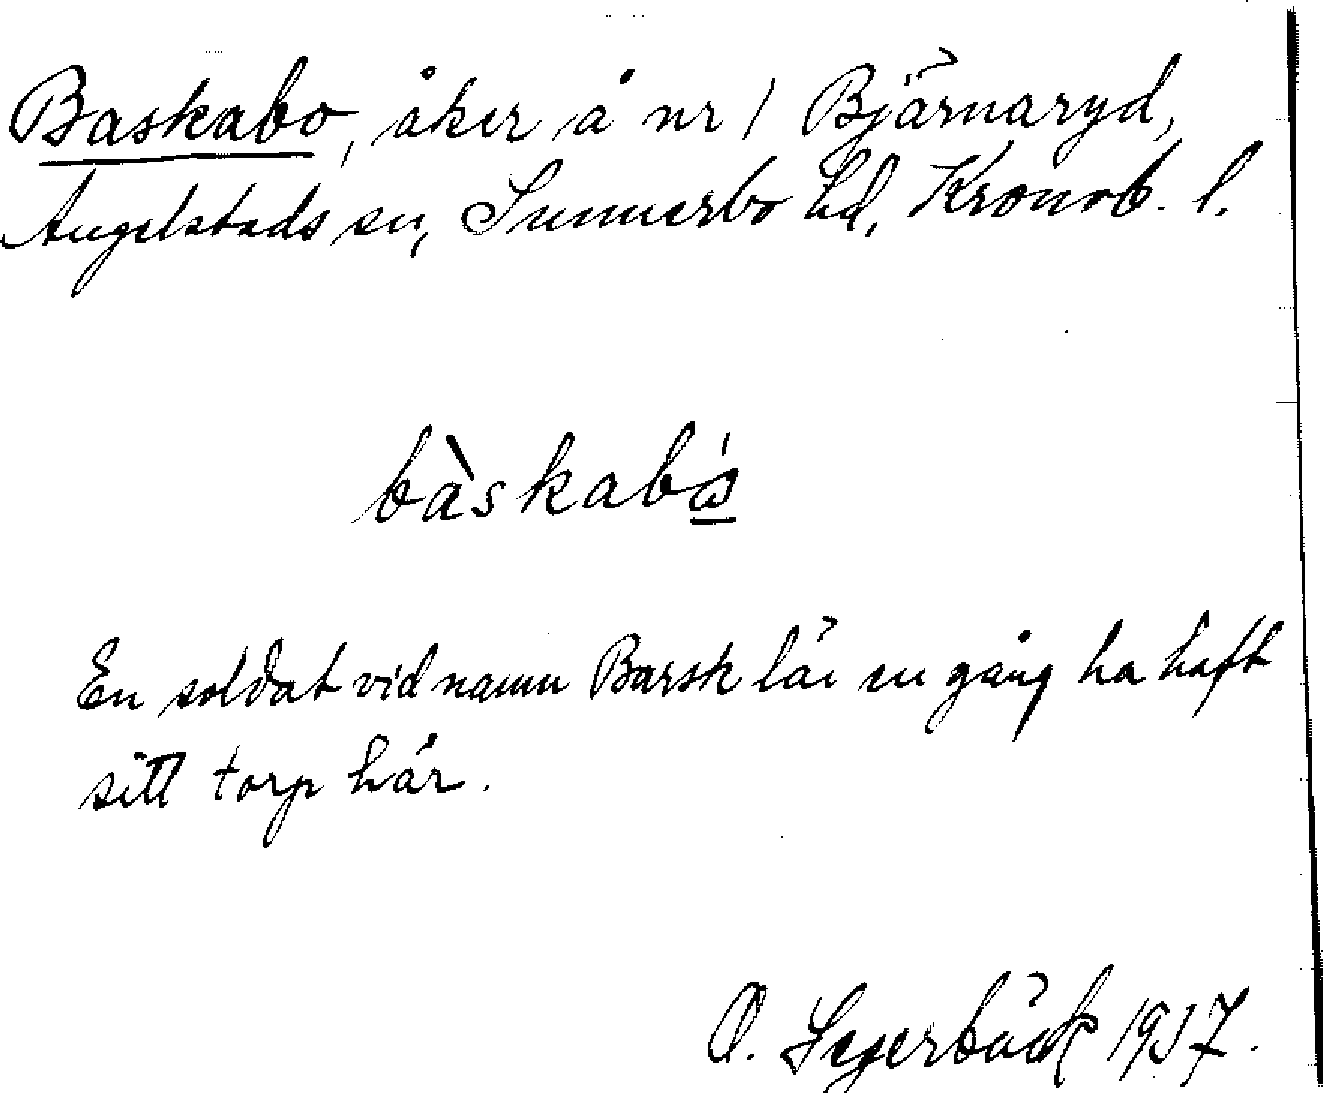 Baskabo, åker å nr 1 Bjärnaryd,
Angelstads sn, Sunnerbo hd, Kronob. l.
bàskabǻ
En soldat vid namn Barsk lär en gång ha haft
sitt torp här.
O. Segerbäck 1937.